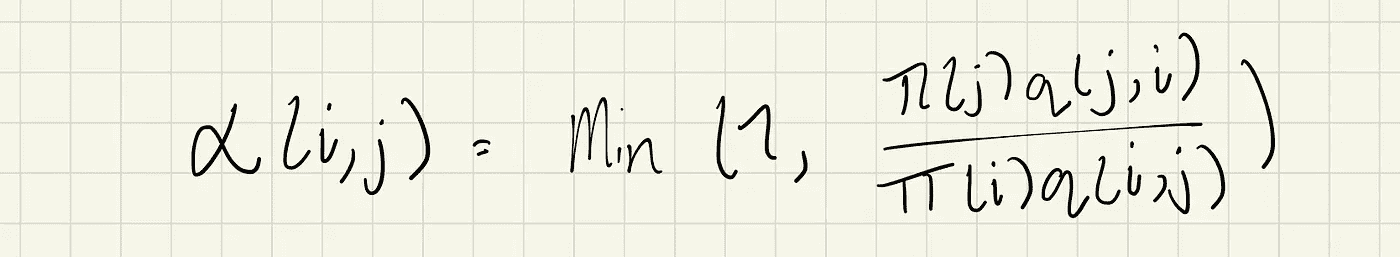 α(i,j) = Min (1, π(j)q(j,i) / π(i)q(i,j))